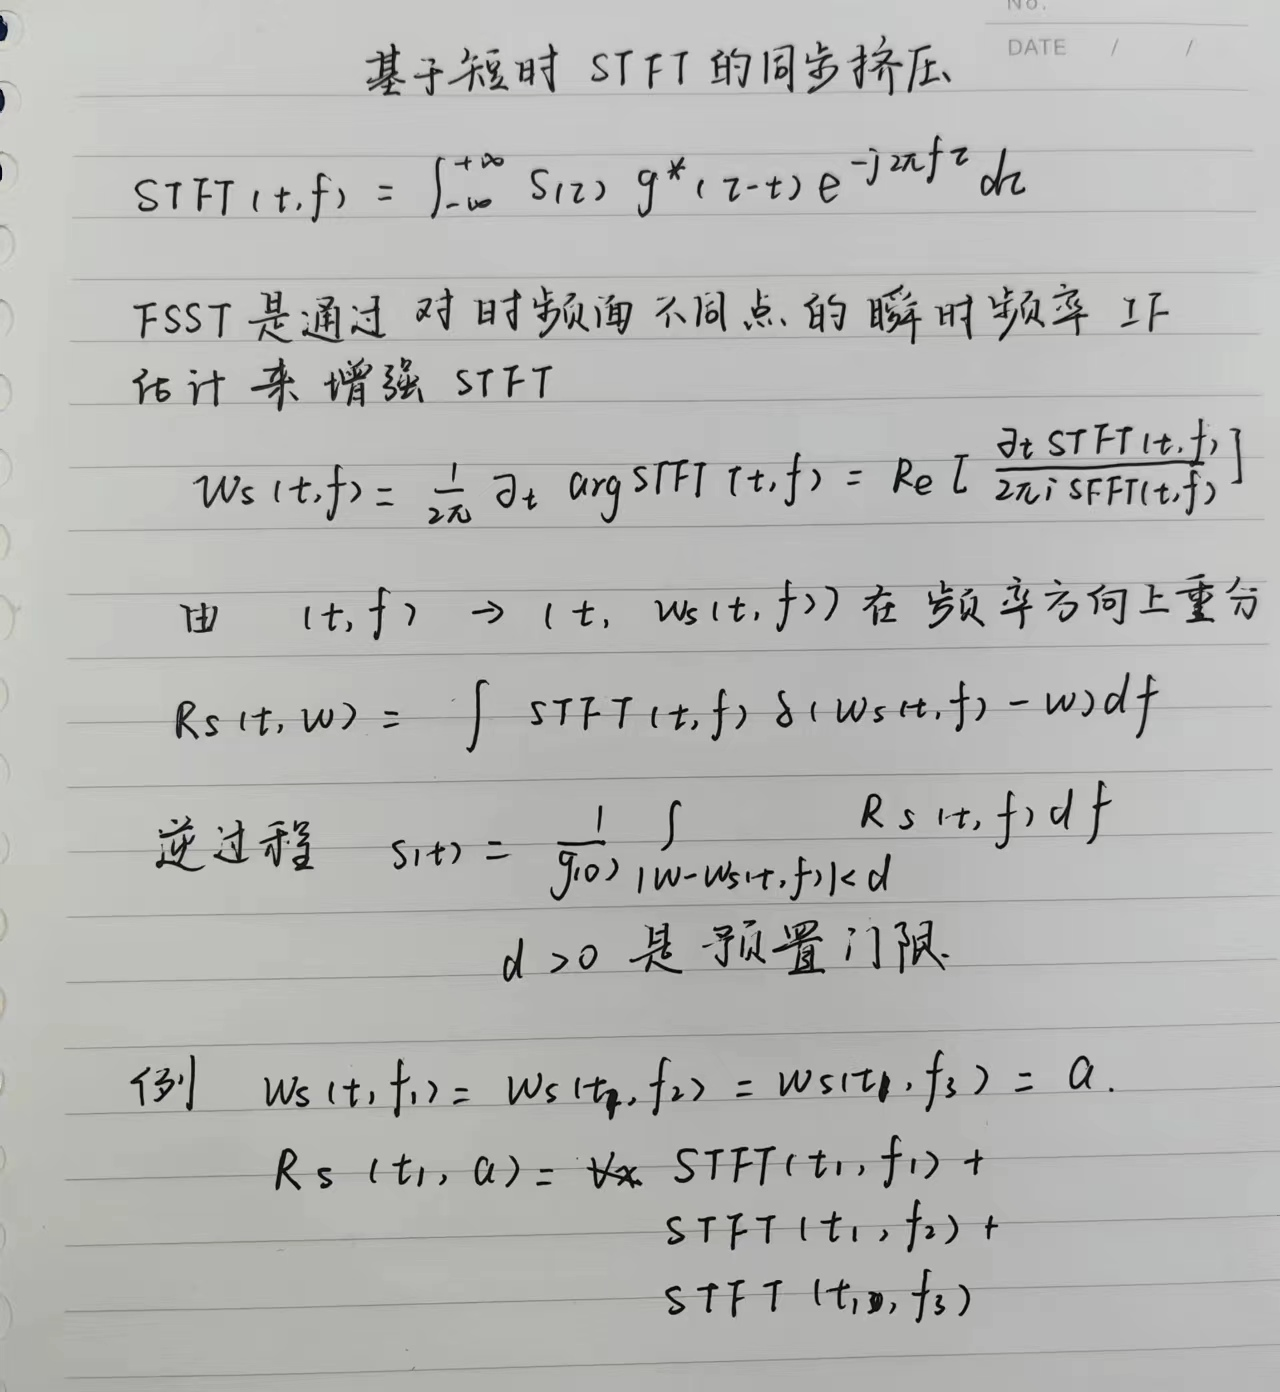 No.
DATE / /
基于短时 STFT 的同步挤压
STFT(t,f) = ∫_{-∞}^{+∞} S(τ) g*(τ-t) e^{-j2πfτ} dτ
FSST 是通过 对时频面不同点的瞬时频率 IF
估计来增强 STFT
Ws(t,f) = \frac{1}{2π} ∂t arg STFT(t,f) = Re [ \frac{∂t STFT(t,f)}{2πi SFFT(t,f)} ]
由 (t,f) → (t, Ws(t,f)) 在频率方向上重分
Rs(t,w) = ∫ STFT(t,f) δ(Ws(t,f) - w) df
逆过程 s(t) = \frac{1}{g(0)} ∫_{|w-Ws(t,f)|<d} Rs(t,f) df
d > 0 是预置门限.
例 Ws(t,f₁) = Ws(t₁,f₂) = Ws(t₁,f₃) = a.
Rs(t₁,a) = STFT(t₁,f₁) +
STFT(t₁,f₂) +
STFT(t₁,f₃)